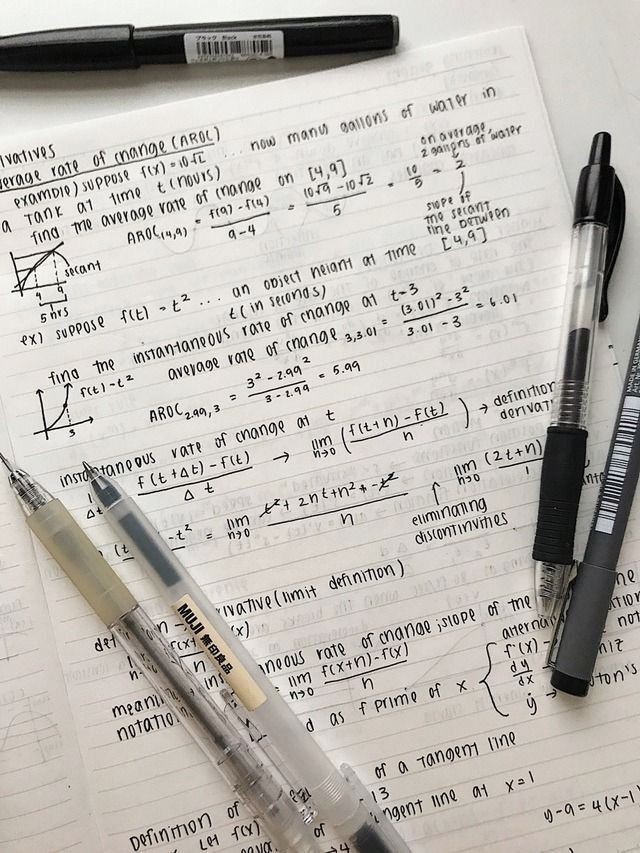 ブラック Black
ivatives
verage rate of change (AROC)
example) suppose f(x) = 10√t ... how many gallons of water in
a tank at time t (hours)
find the average rate of change on [4,9]
AROC(4,9) = f(9) - f(4) / 9-4 = 10√9 - 10√2 / 5 = 10/5 = 2
on average,
2 gallons of water
slope of
the secant
line between
[4,9]
secant
4 9
5 hrs
ex) suppose f(t) = t² ... an object height at time
t (in seconds)
find the instantaneous rate of change at t=3
f(t)-t² average rate of change 3,3.01 = (3.01)² - 3² / 3.01 - 3 = 6.01
3
AROC 2.99,3 = 3² - 2.99² / 3 - 2.99 = 5.99
instantaneous rate of change at t
f(t+Δt) - f(t) / Δt → lim h→0 (f(t+h) - f(t) / h) → definition
derivat
Δt
-t² = lim h→0 t² + 2ht + h² - t² / h
lim h→0 (2t+h) / 1
↑
eliminating
discontinuities
rivative (limit definition)
neous rate of change; slope of the
lim h→0 f(x+h) - f(x) / h
meani
notatio
d as f prime of x
f'(x)
dy/dx
ẏ →
ton's
MUJI 無印良品
of a tangent line
Definition of
13
Let f(x)
ngent line at x=1
y-9 = 4(x-1